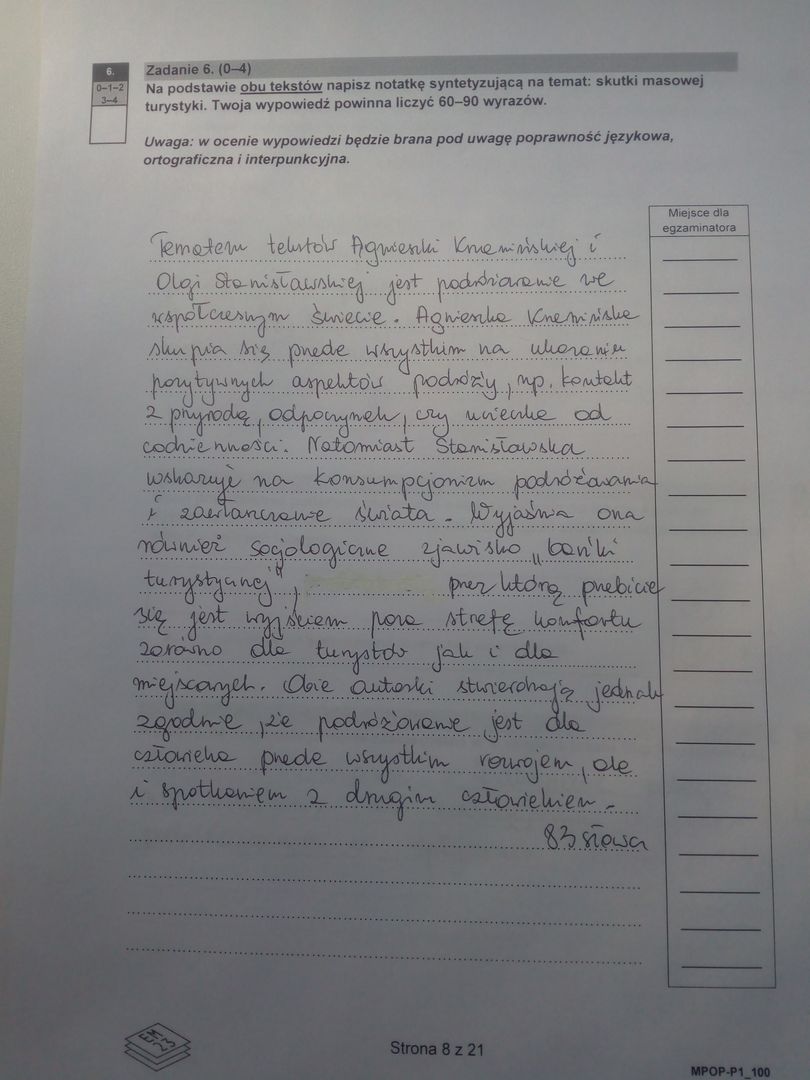 6.
0–1–2
3–4
Zadanie 6. (0–4)
Na podstawie obu tekstów napisz notatkę syntetyzującą na temat: skutki masowej
turystyki. Twoja wypowiedź powinna liczyć 60–90 wyrazów.
Uwaga: w ocenie wypowiedzi będzie brana pod uwagę poprawność językowa,
ortograficzna i interpunkcyjna.
Miejsce dla
egzaminatora
Tematem tekstów Agnieszki Krzemińskiej i
Olgi Stanisławskiej jest podróżowanie we
współczesnym świecie. Agnieszka Krzemińska
skupia się przede wszystkim na ukazaniu
pozytywnych aspektów podróży, np. kontakt
z przyrodą, odpoczynek, czy ucieczka od
codzienności. Natomiast Stanisławska
wskazuje na konsumpcjonizm podróżowania
i zawłaszczanie świata. Wyjaśnia ona
również socjologiczne zjawisko „bańki
turystycznej", przez którą przebicie
się jest wyjściem poza strefę komfortu
zarówno dla turystów jak i dla
miejscowych. Obie autorki stwierdzają jednak
zgodnie, że podróżowanie jest dla
człowieka przede wszystkim rozwojem, ale
i spotkaniem z drugim człowiekiem.
83 słowa
EM
23
Strona 8 z 21
MPOP-P1_100